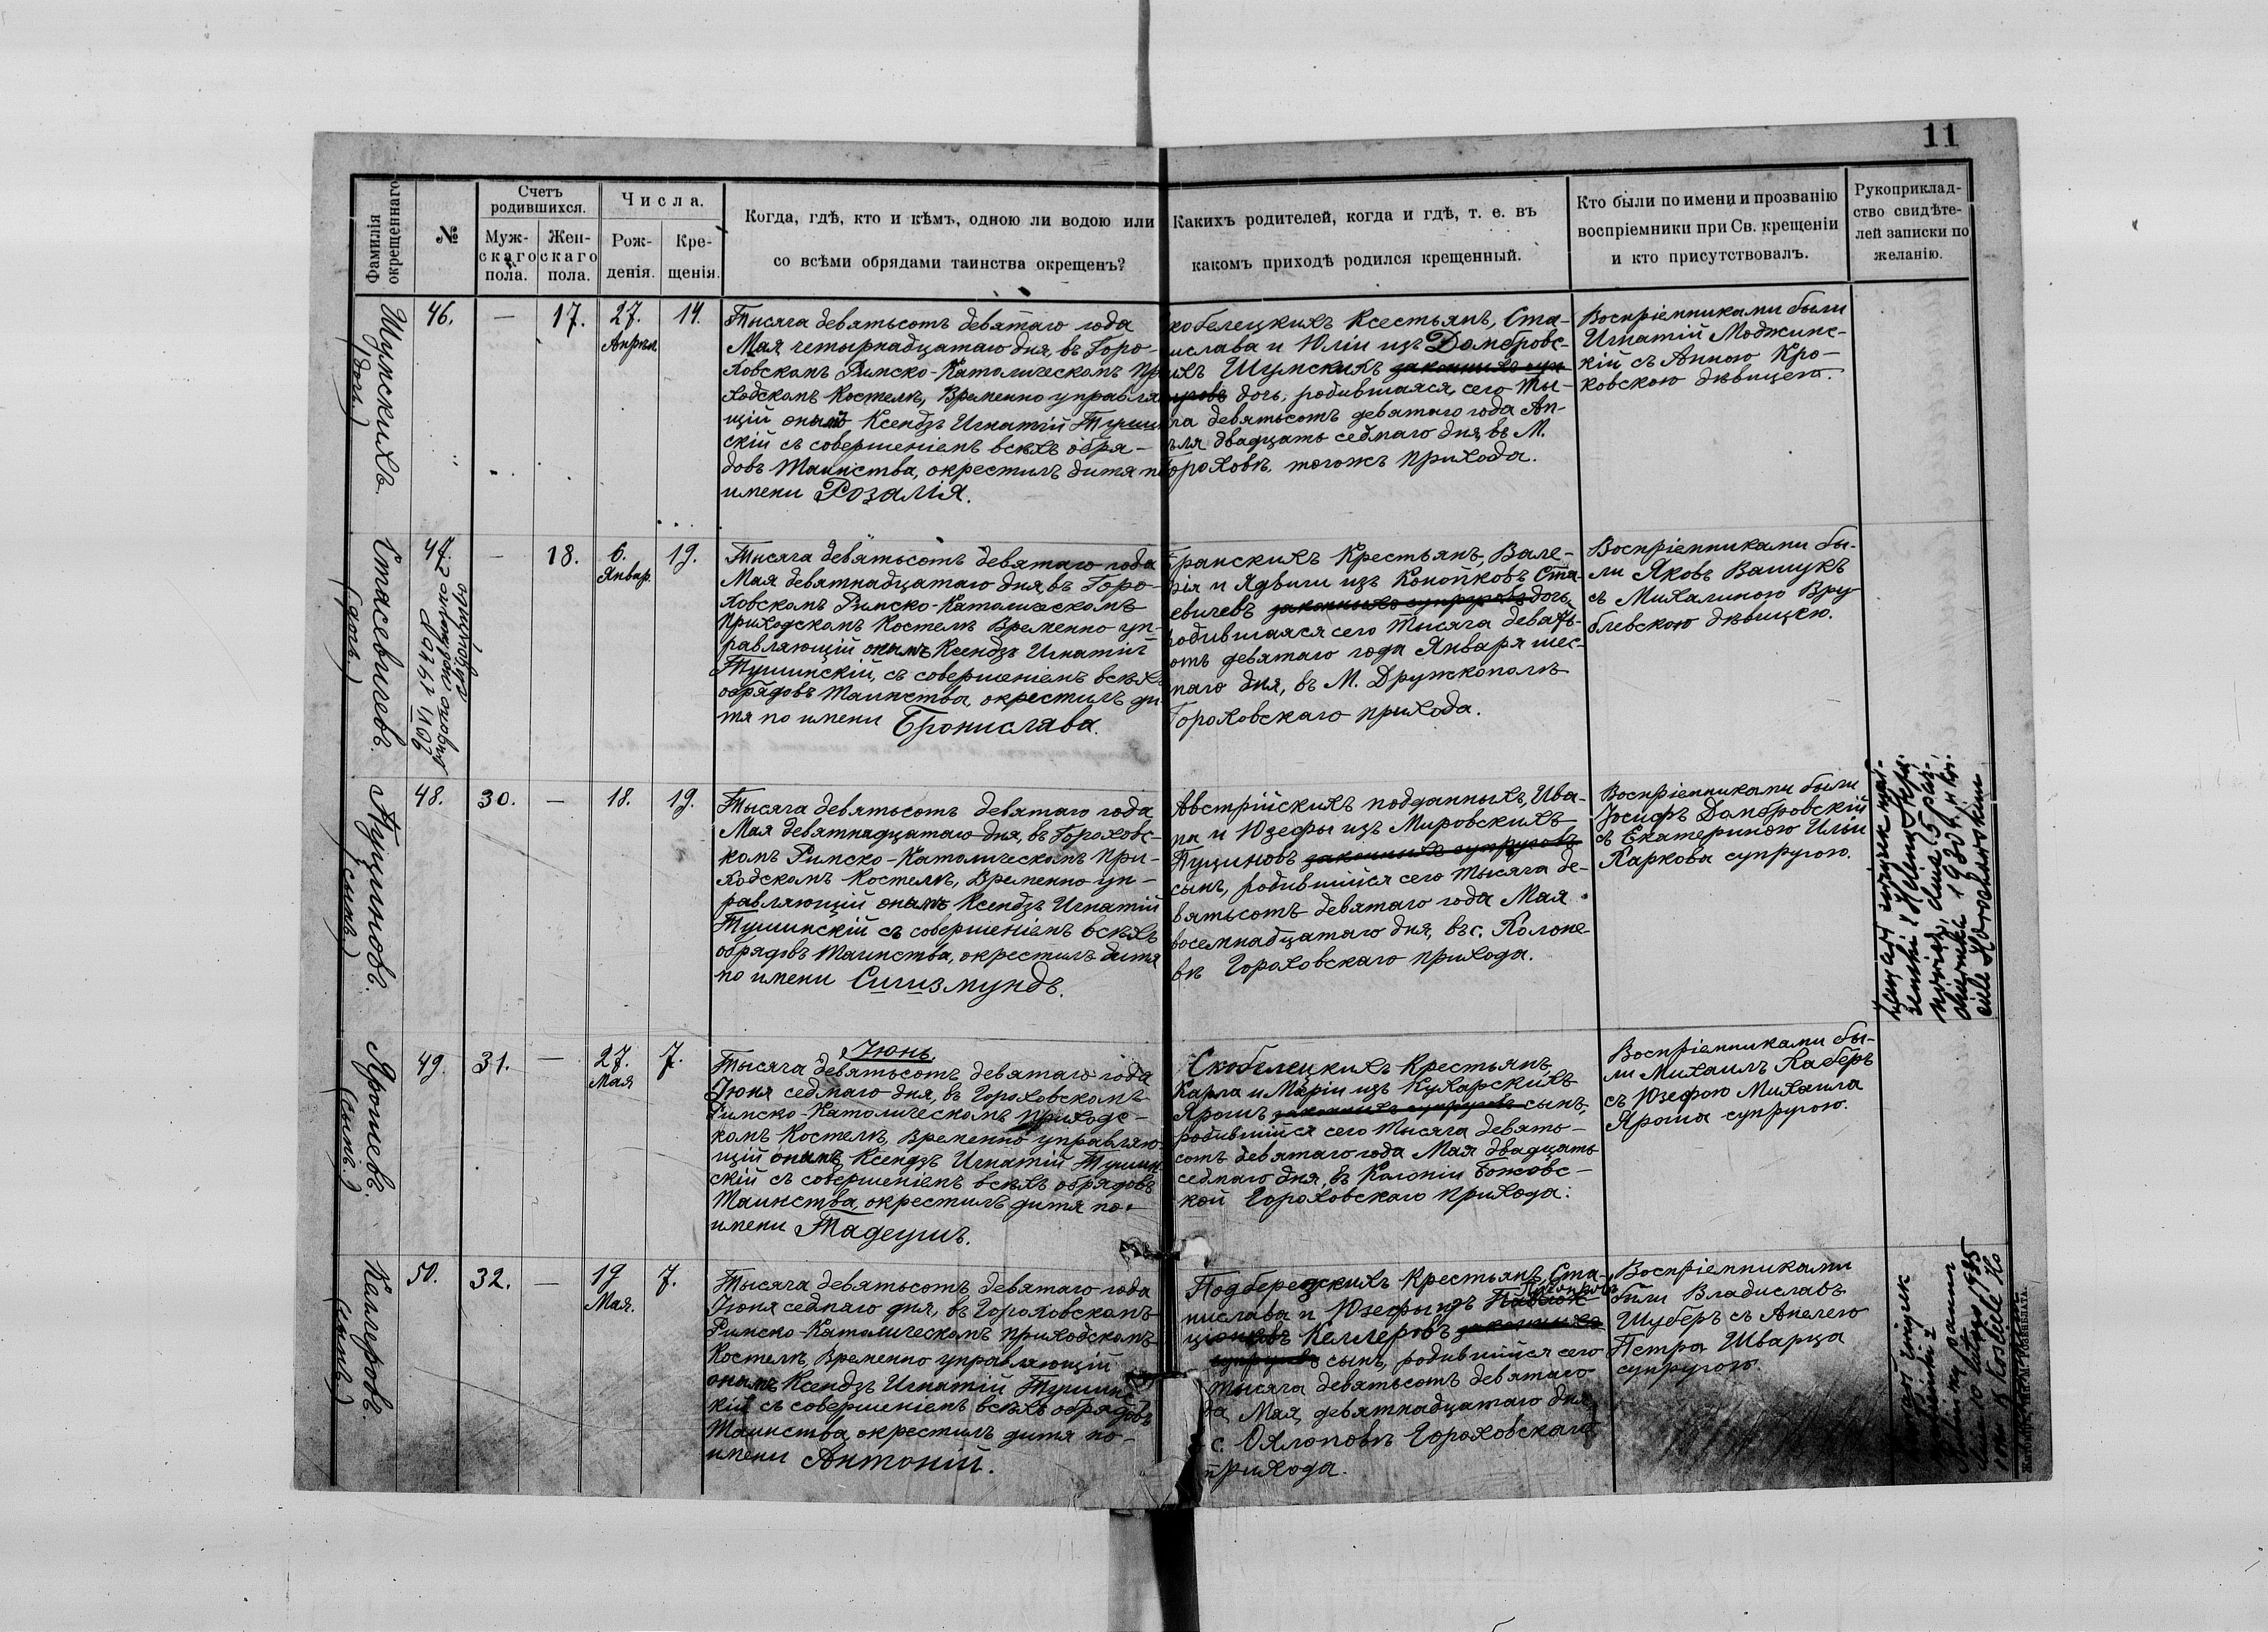 11
Фамилія окрещеннаго
№
Счетъ родившихся.
Мужскаго пола.
Женскаго пола.
Числа.
Рожденія.
Крещенія.
Когда, гдѣ, кто и кѣмъ, одною ли водою или
со всѣми обрядами таинства окрещенъ?
Какихъ родителей, когда и гдѣ, т. е. въ
какомъ приходѣ родился крещенный.
Кто были по имени и прозванію
воспріемники при Св. крещеніи
и кто присутствовалъ.
Рукоприклад-
ство свидѣте-
лей записки по
желанію.
Шумскихъ
(дочь)
46.
—
17.
27.
Апрѣля
14.
Тысяча девятьсотъ девятаго года
Мая четырнадцатаго дня, въ Горо-
ховскомъ Римско-Католическомъ при
ходскомъ Костелѣ, Временно управля
щій онымъ Ксендзъ Игнатій Тушин
скій съ совершеніемъ всѣхъ обря-
довъ Таинства, окрестилъ дитя по
имени Розалія.
кобелецкихъ Ксестьянъ, Ста-
ислава и Юліи изъ Домбровс-
ихъ Шумскихъ законныхъ суп
уговъ дочь, родившаяся, сего Ты-
ча девятьсотъ девятаго года Ап-
ѣля двадцать седмаго дня, въ М.
Гороховѣ, тогожъ прихода.
Воспріенниками были
Игнатій Моджинс-
кій съ Анною Кро-
ковскою дѣвицею.
Стасевичевъ.
(дочь.)
47.
18.
6.
Январ.
19.
Тысяча девятьсотъ девятаго года
Мая девятнадцатаго дня, въ Горо-
ховскомъ Римско-Католическомъ
приходскомъ Костелѣ Временно уп-
равляющій онымъ Ксендзъ Игнатій
Тушинскій, съ совершеніемъ всѣхъ
обрядовъ Таинства, окрестилъ ди
тя по имени Бронислава.
Бранскихъ Крестьянъ, Вале-
рія и Ядвиги изъ Конопковъ Ста-
евичевъ законныхъ супруговъ дочь,
родившаяся сего Тысяча девять-
отъ девятаго года Января шес-
таго дня, въ М. Дружкополѣ
Гороховскаго прихода.
Воспріенниками бы-
ли Яковъ Вашукъ
съ Михалиною Вру-
блевскою дѣвицею.
Пуциновъ.
(сынъ)
48.
30.
—
18.
19.
Тысяча девятьсотъ девятаго года
Мая девятнадцатаго дня, въ Гороховс-
комъ Римско-Католическомъ при-
ходскомъ Костелѣ, Временно уп-
равляющій онымъ Ксендзъ Игнатій
Тушинскій съ совершеніемъ всѣхъ
обрядовъ Таинства, окрестилъ дитя
по имени Сигизмундъ.
Австрійскихъ подданныхъ, Ива-
на и Юзефы изъ Мировскихъ
Пуциновъ законныхъ супруговъ
сынъ, родившійся сего Тысяча де-
вятьсотъ девятаго года Мая
восемнадцатаго дня, въ с. Колоне-
вѣ Гороховскаго прихода.
Воспріенниками были
Іосифъ Домбровскій
съ Екатериною Ильи
Каркова супругою.
Ярошевъ.
(сынъ.)
49.
31.
—
27.
Мая
7.
Іюнь
Тысяча девятьсотъ девятаго года
Іюня седмаго дня, въ Гороховскомъ
Римско-Католическомъ приходс-
комъ Костелѣ, Временно управляю-
щій онымъ Ксендзъ Игнатій Тушин
скій съ совершеніемъ всѣхъ обрядовъ
Таинства, окрестилъ дитя по
имени Тадеушъ.
Скобелецкихъ Крестьянъ
Карла и Маріи изъ Кухарскихъ
Ярошъ законныхъ супруговъ сынъ,
родившійся сего Тысяча девять-
сотъ девятаго года Мая двадцать
седмаго дня, въ Колоніи Божовс-
кой Гороховскаго прихода.
Воспріенниками бы-
ли Михаилъ Каберъ
съ Юзефою Михаила
Яроша супругою.
Келлеровъ.
(сынъ)
50.
32.
—
19
Мая.
7.
Тысяча девятьсотъ девятаго года
Іюня седмаго дня, въ Гороховскомъ
Римско-Католическомъ приходскомъ
Костелѣ, Временно управляющій
онымъ Ксендзъ Игнатій Тушинс
кій съ совершеніемъ всѣхъ обрядовъ
Таинства, окрестилъ дитя по-
имени Антоній.
Подберезскихъ Крестьянъ, Ста-
нислава и Юзефы изъ
Келлеровъ законныхъ
супруговъ сынъ, родившійся сего
Тысяча девятьсотъ девятаго
да, Мая, девятнадцатаго дня
с. Гороховскаго
прихода.
Воспріемниками
были Владиславъ
Шуберъ съ Анелею
Петра Шварца
супругою.